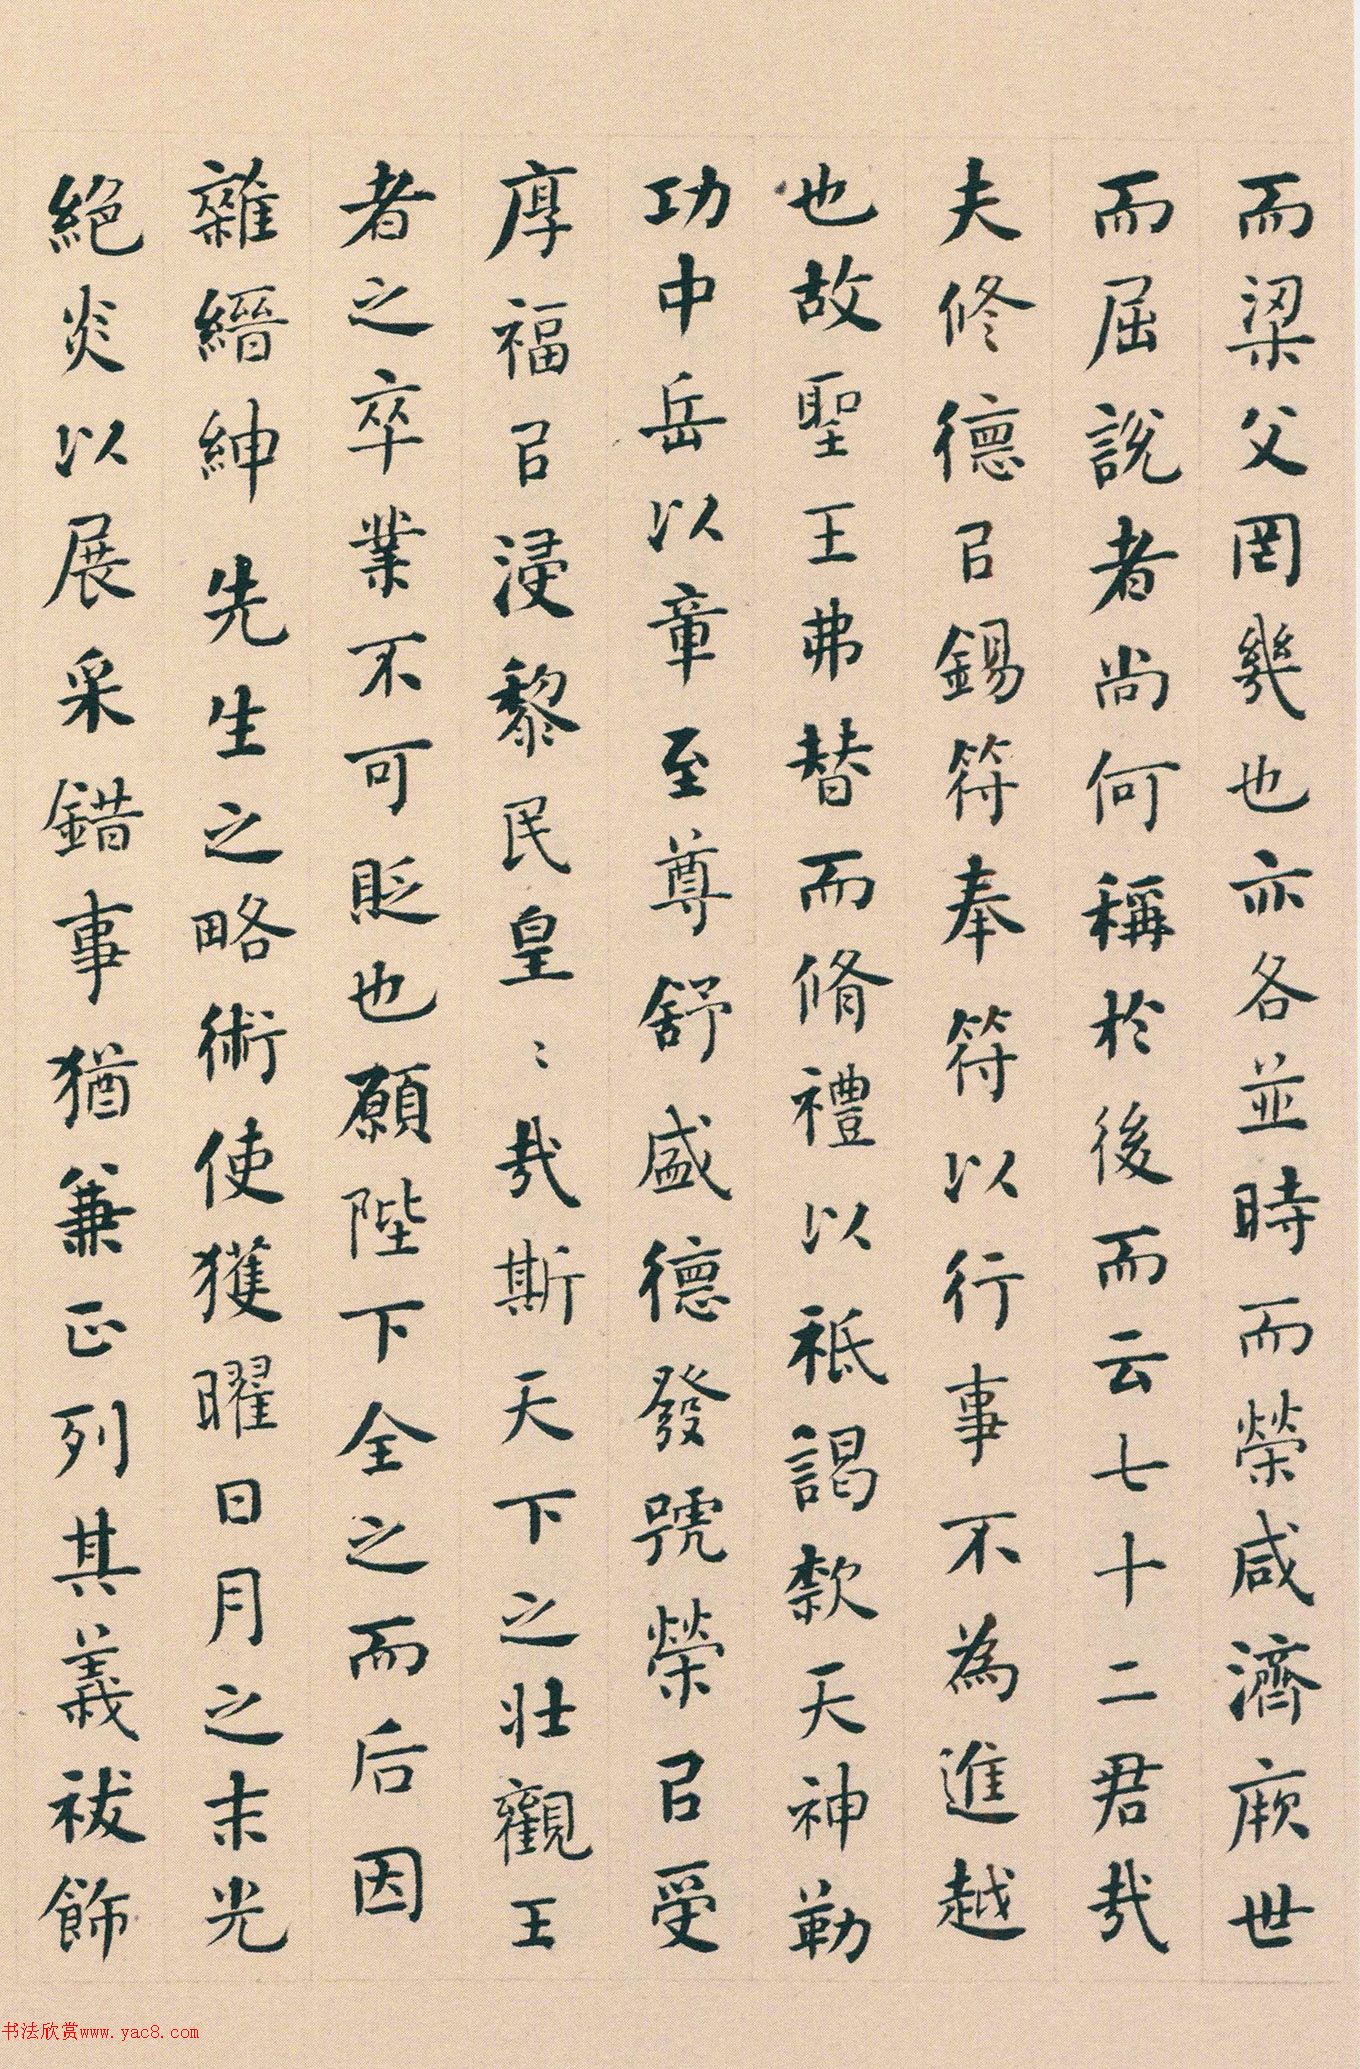 而梁父罔幾也亦各並時而榮咸濟厥世
而屈說者尚何稱於後而云七十二君哉
夫修德㠯錫符奉符以行事不為進越
也故聖王弗替而脩禮以祗謁欵天神勒
功中岳以章至尊舒盛德發號榮㠯受
厚福㠯浸黎民皇〻哉斯天下之壯觀王
者之卒業不可貶也願陛下全之而后因
雜縉紳先生之略術使獲曜日月之末光
絕炎以展采錯事猶兼正列其義祓飾
书法欣赏www.yac8.com